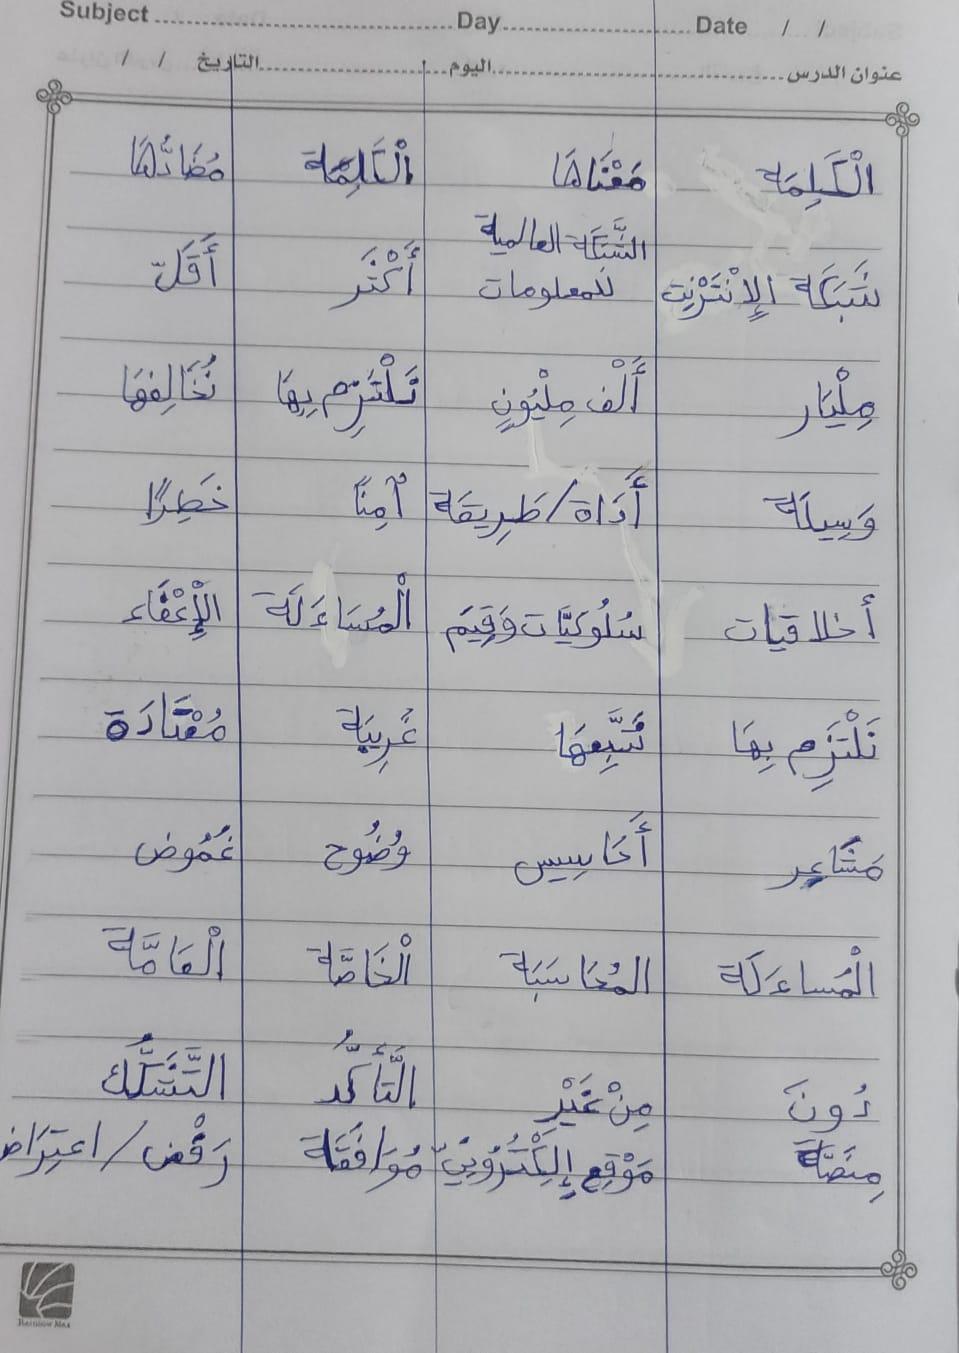 Subject Day Date / /
عنوان الدرس اليوم التاريخ / /
الْكَلِمَة مَعْنَاهَا الْكَلِمَة مُضَادُّهَا
شَبَكَة الإِنْتَرْنِت الشَّبَكَة العالمية للمعلومات أَكْثَر أَقَلّ
مِلْيَار أَلْف مِلْيُونٍ نَلْتَزِم بِهَا نُخَالِفهَا
وَسِيلَة أَدَاة/طَرِيقَة آمِنًا خَطِرًا
أخلاقيات سُلُوكيَّات وَقِيَم الْمُسَاءَلَة الْإِعْفَاء
نَلْتَزِم بِهَا نَتَّبِعهَا غَرِيبَة مُعْتَادَة
مَشَاعِر أَحَاسِيس وُضُوح غُمُوض
الْمُساءَلَة المُحَاسَبَة الْخَاصَّة الْعَامَّة
دُونَ مِنْ غَيْر التَّأَكُّد التَّشَكُّك
مِنَصَّة مَوْقِع إِلِكْتُرُونِيّ مُوَافَقَة رَفْض/اعتِرَاض
Rainbow Max